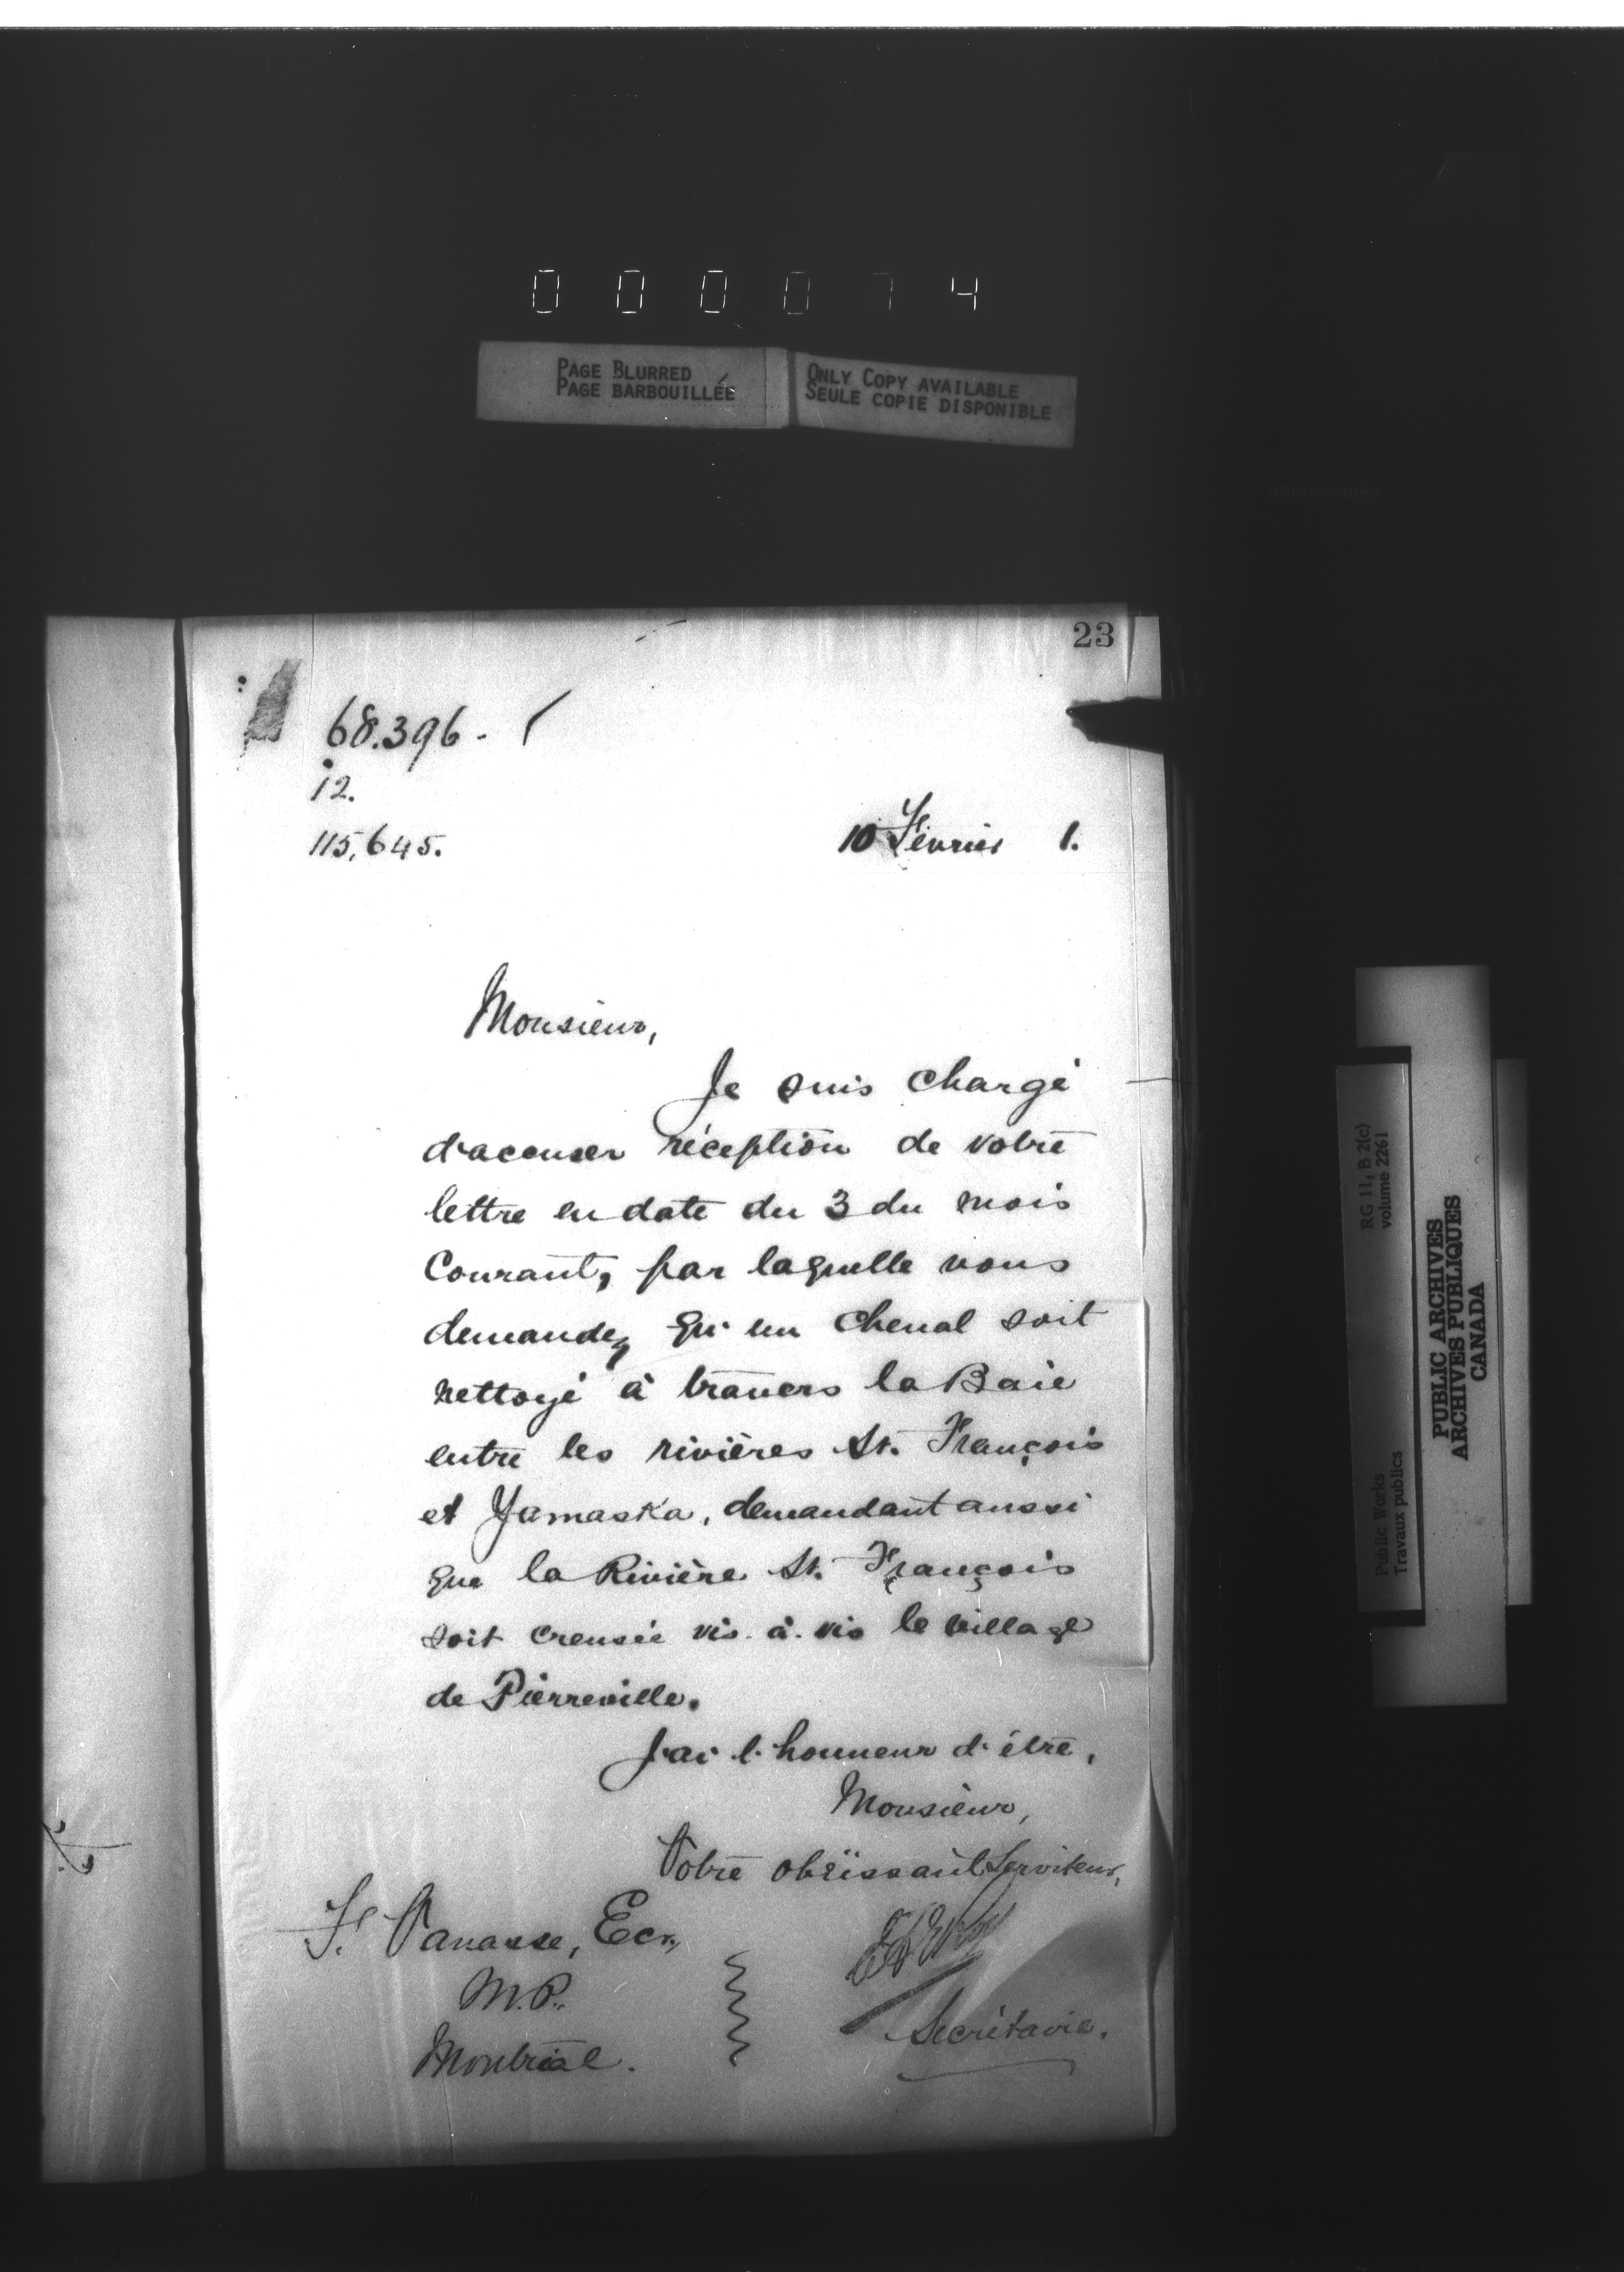 0 0 0 0 7 4
PAGE BLURRED
PAGE BARBOUILLÉE
ONLY COPY AVAILABLE
SEULE COPIE DISPONIBLE
23
68.396.
12.
115,645.
10 Février 1.
Monsieur,
Je suis chargé
d'accuser réception de votre
lettre en date du 3 du mois
Courant, par laquelle vous
demandez qu'un chenal soit
nettoyé à travers la Baie
entre les rivières St. François
et Yamaska, demandant aussi
que la Rivière St. François
soit creusée vis-à-vis le village
de Pierreville.
J'ai l'honneur d'être,
Monsieur,
Votre obéissant Serviteur,
F. Vanasse, Ecr.,
M.P.
Montréal.
Secrétaire.
RG 11, B 2(c)
volume 2261
Public Works
Travaux publics
PUBLIC ARCHIVES
ARCHIVES PUBLIQUES
CANADA